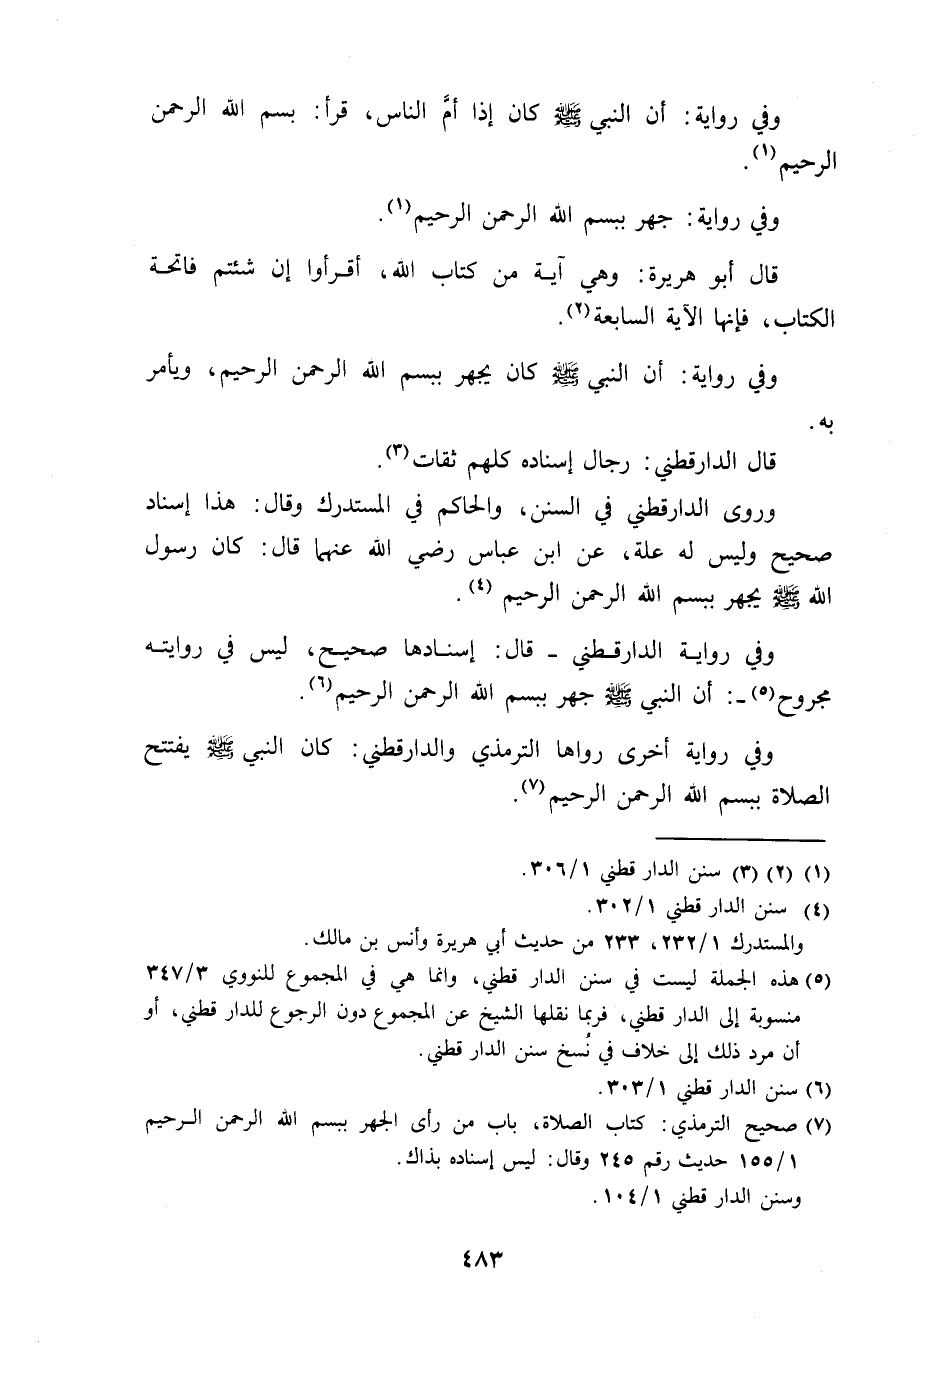 وفي رواية: أن النبي ﷺ كان إذا أمَّ الناس، قرأ: بسم الله الرحمن
الرحيم(١).
وفي رواية: جهر ببسم الله الرحمن الرحيم(١).
قال أبو هريرة: وهي آية من كتاب الله، أقرأوا إن شئتم فاتحة
الكتاب، فإنها الآية السابعة(٢).
وفي رواية: أن النبي ﷺ كان يجهر ببسم الله الرحمن الرحيم، ويأمر
به.
قال الدارقطني: رجال إسناده كلهم ثقات(٣).
وروى الدارقطني في السنن، والحاكم في المستدرك وقال: هذا إسناد
صحيح وليس له علة، عن ابن عباس رضي الله عنهما قال: كان رسول
الله ﷺ يجهر ببسم الله الرحمن الرحيم (٤).
وفي رواية الدارقطني - قال: إسنادها صحيح، ليس في روايته
مجروح(٥)-: أن النبي ﷺ جهر ببسم الله الرحمن الرحيم(٦).
وفي رواية أخرى رواها الترمذي والدارقطني: كان النبي ﷺ يفتتح
الصلاة ببسم الله الرحمن الرحيم(٧).
(١) (٢) (٣) سنن الدار قطني ٣٠٦/١.
(٤) سنن الدار قطني ٣٠٢/١.
والمستدرك ٢٣٢/١، ٢٣٣ من حديث أبي هريرة وأنس بن مالك.
(٥) هذه الجملة ليست في سنن الدار قطني، وانما هي في المجموع للنووي ٣٤٧/٣
منسوبة إلى الدار قطني، فربما نقلها الشيخ عن المجموع دون الرجوع للدار قطني، أو
أن مرد ذلك إلى خلاف في نُسخ سنن الدار قطني.
(٦) سنن الدار قطني ٣٠٣/١.
(٧) صحيح الترمذي: كتاب الصلاة، باب من رأى الجهر ببسم الله الرحمن الرحيم
١٥٥/١ حديث رقم ٢٤٥ وقال: ليس إسناده بذاك.
وسنن الدار قطني ١٠٤/١.
٤٨٣